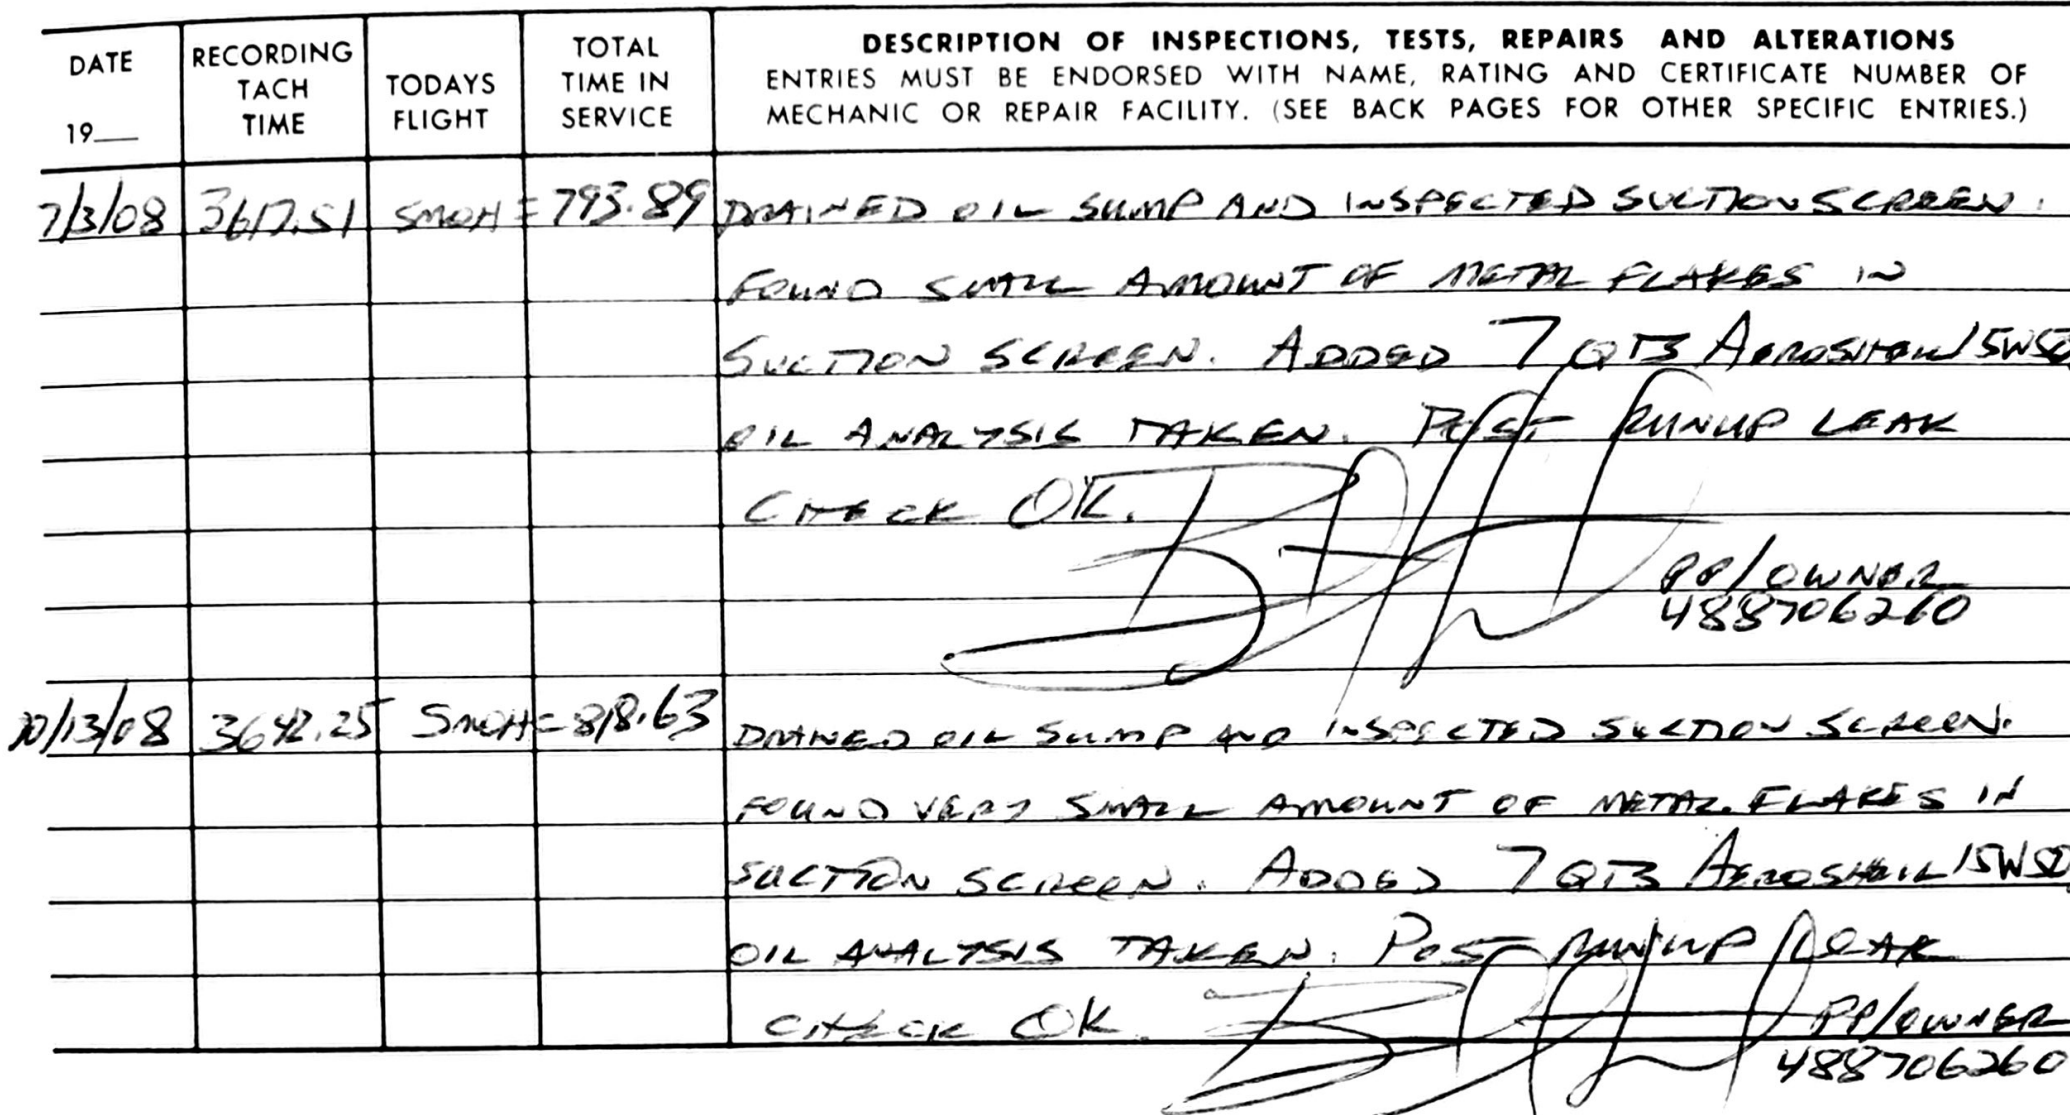 DATE
19
RECORDING
TACH
TIME
TODAYS
FLIGHT
TOTAL
TIME IN
SERVICE
DESCRIPTION OF INSPECTIONS, TESTS, REPAIRS AND ALTERATIONS
ENTRIES MUST BE ENDORSED WITH NAME, RATING AND CERTIFICATE NUMBER OF
MECHANIC OR REPAIR FACILITY. (SEE BACK PAGES FOR OTHER SPECIFIC ENTRIES.)
7/3/08 3617.51 SMOH = 793.89 DRAINED OIL SUMP AND INSPECTED SUCTION SCREEN.
FOUND SMALL AMOUNT OF METAL FLAKES IN
SUCTION SCREEN. ADDED 7 QTS AEROSHELL 15W50
OIL ANALYSIS TAKEN. POST RUNUP LEAK
CHECK OK.
PP/OWNER
488706260
10/13/08 3642.25 SMOH = 818.63 DRAINED OIL SUMP AND INSPECTED SUCTION SCREEN.
FOUND VERY SMALL AMOUNT OF METAL FLAKES IN
SUCTION SCREEN. ADDED 7 QTS AEROSHELL 15W50
OIL ANALYSIS TAKEN. POST RUNUP LEAK
CHECK OK. PP/OWNER
488706260